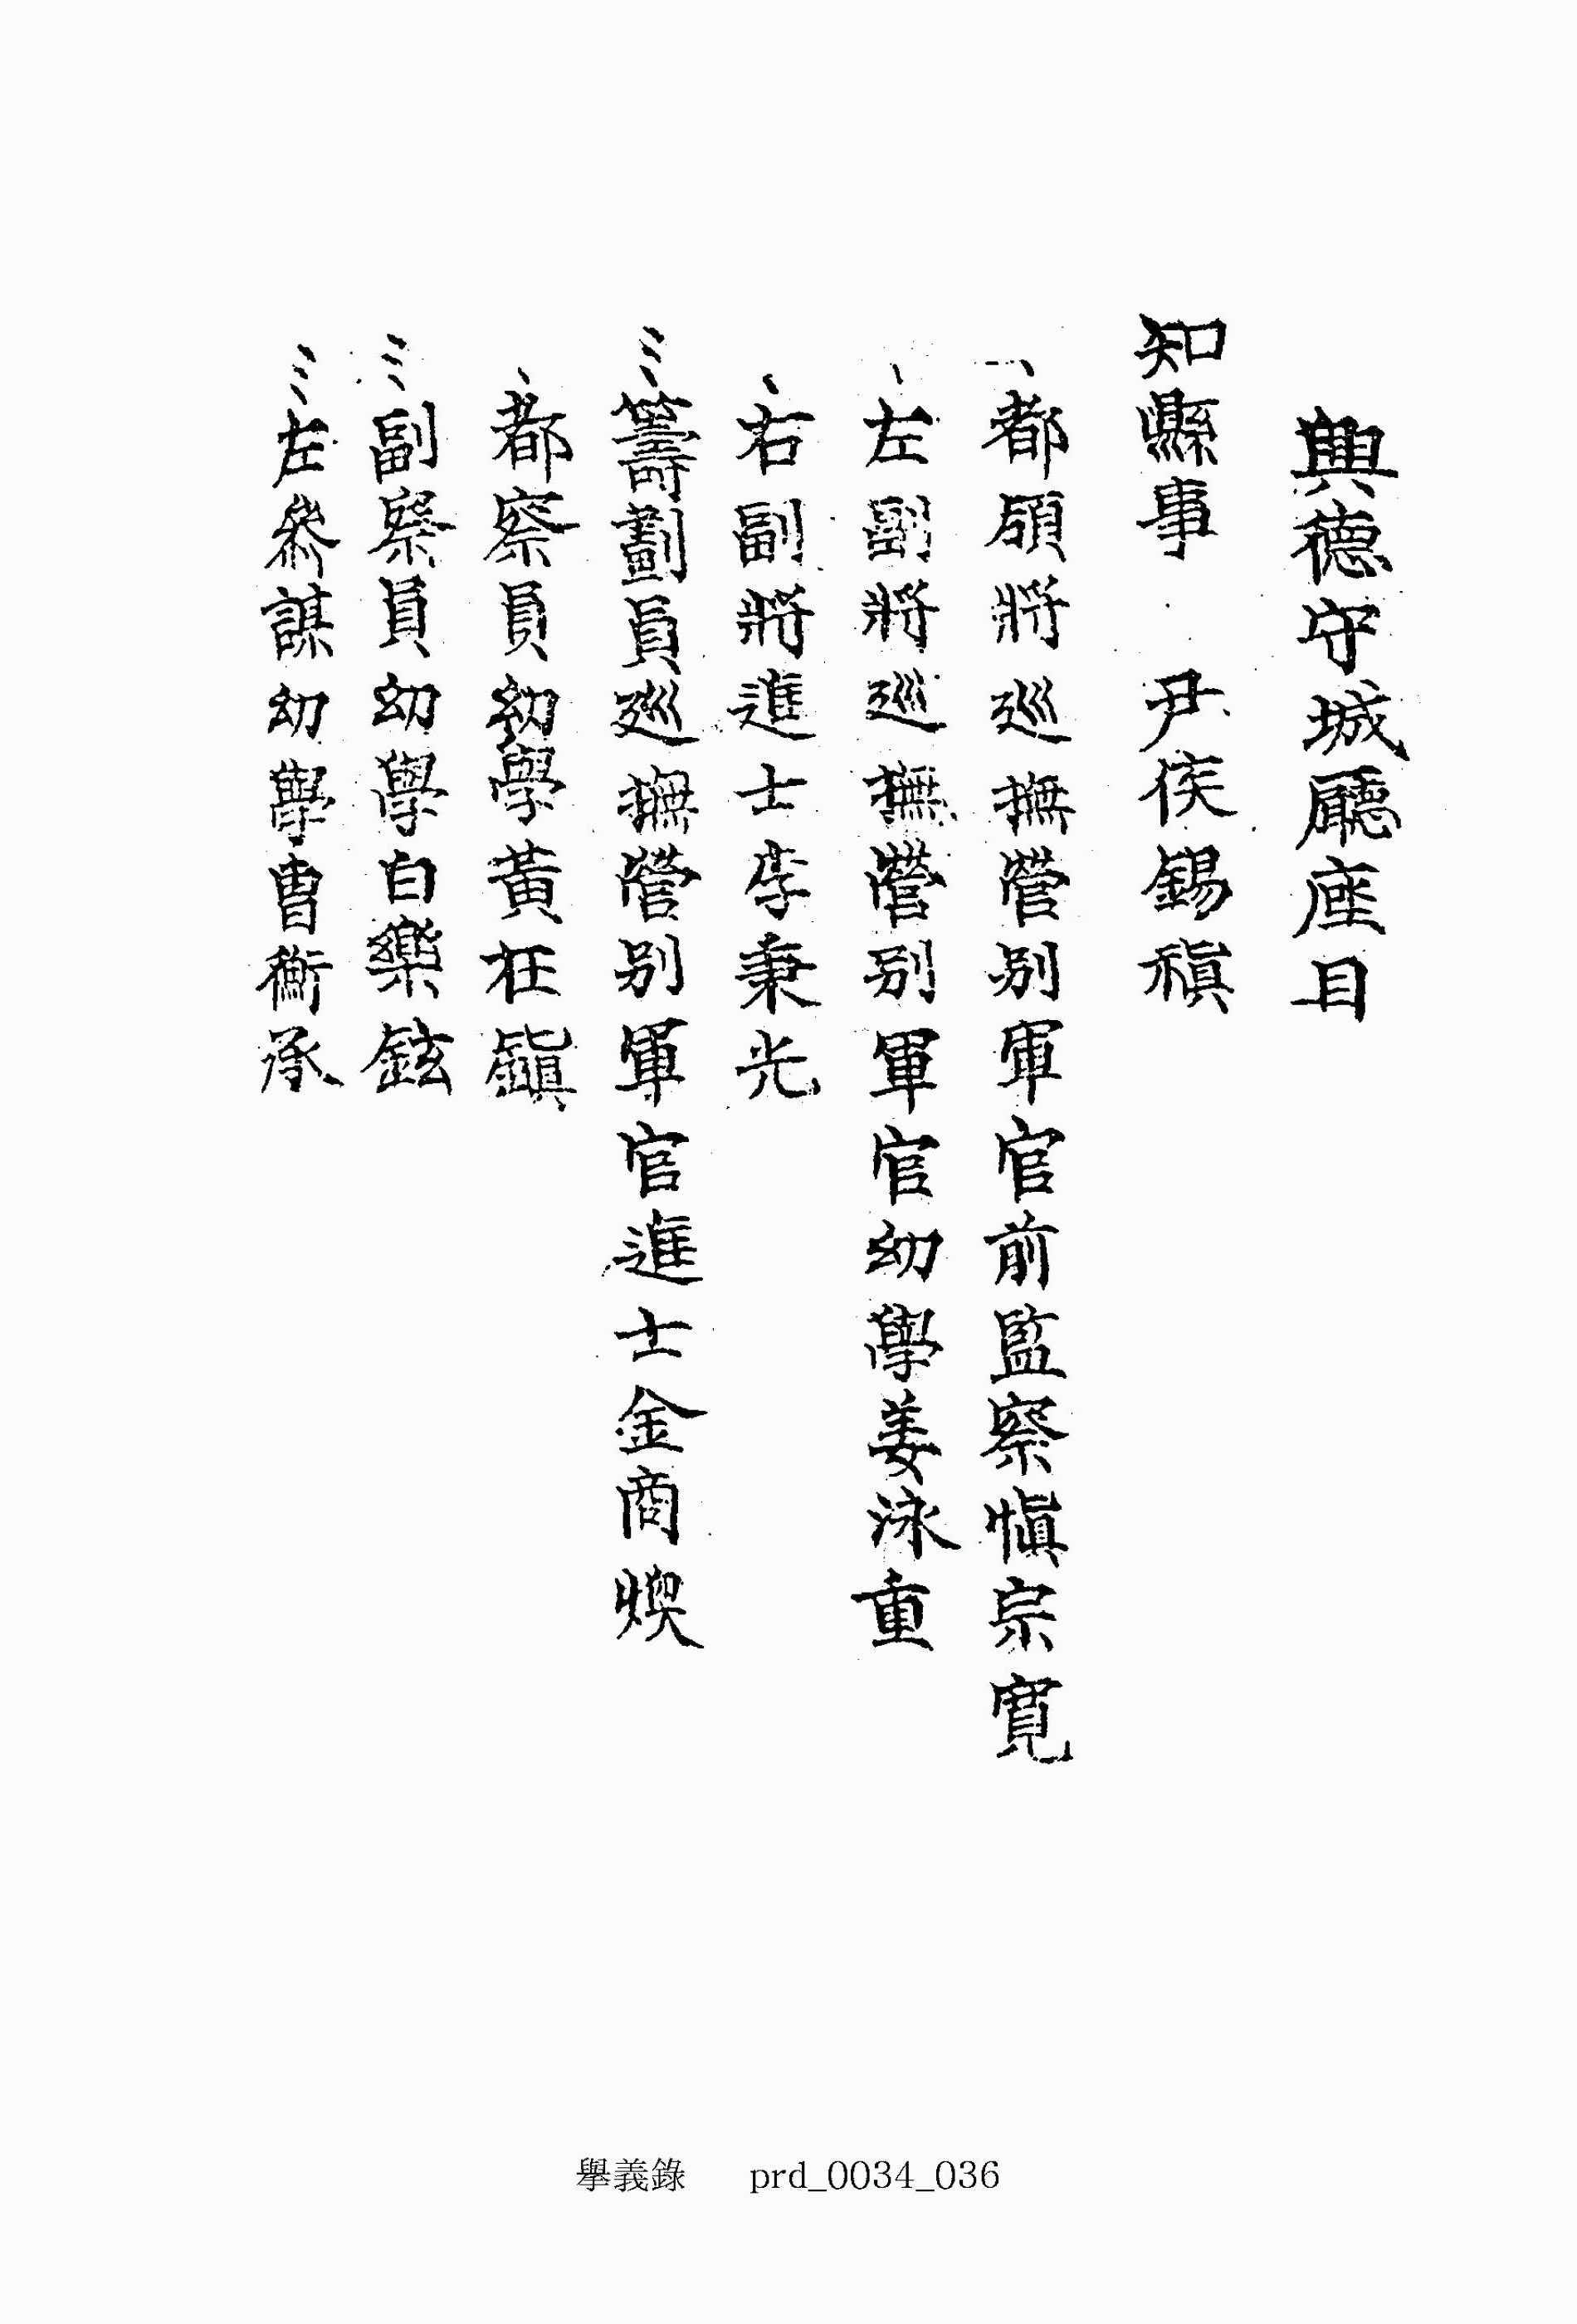 興德守城廳座目
知縣事 尹侯錫禛
都領將巡撫營別軍官前監察愼宗寬
左副將巡撫營別軍官幼學姜泳重
右副將進士李秉光
籌劃員巡撫營別軍官進士金商煥
都察員幼學黃在鎭
副察員幼學白樂鉉
左叅謀幼學曺衡承
擧義錄 prd_0034_036